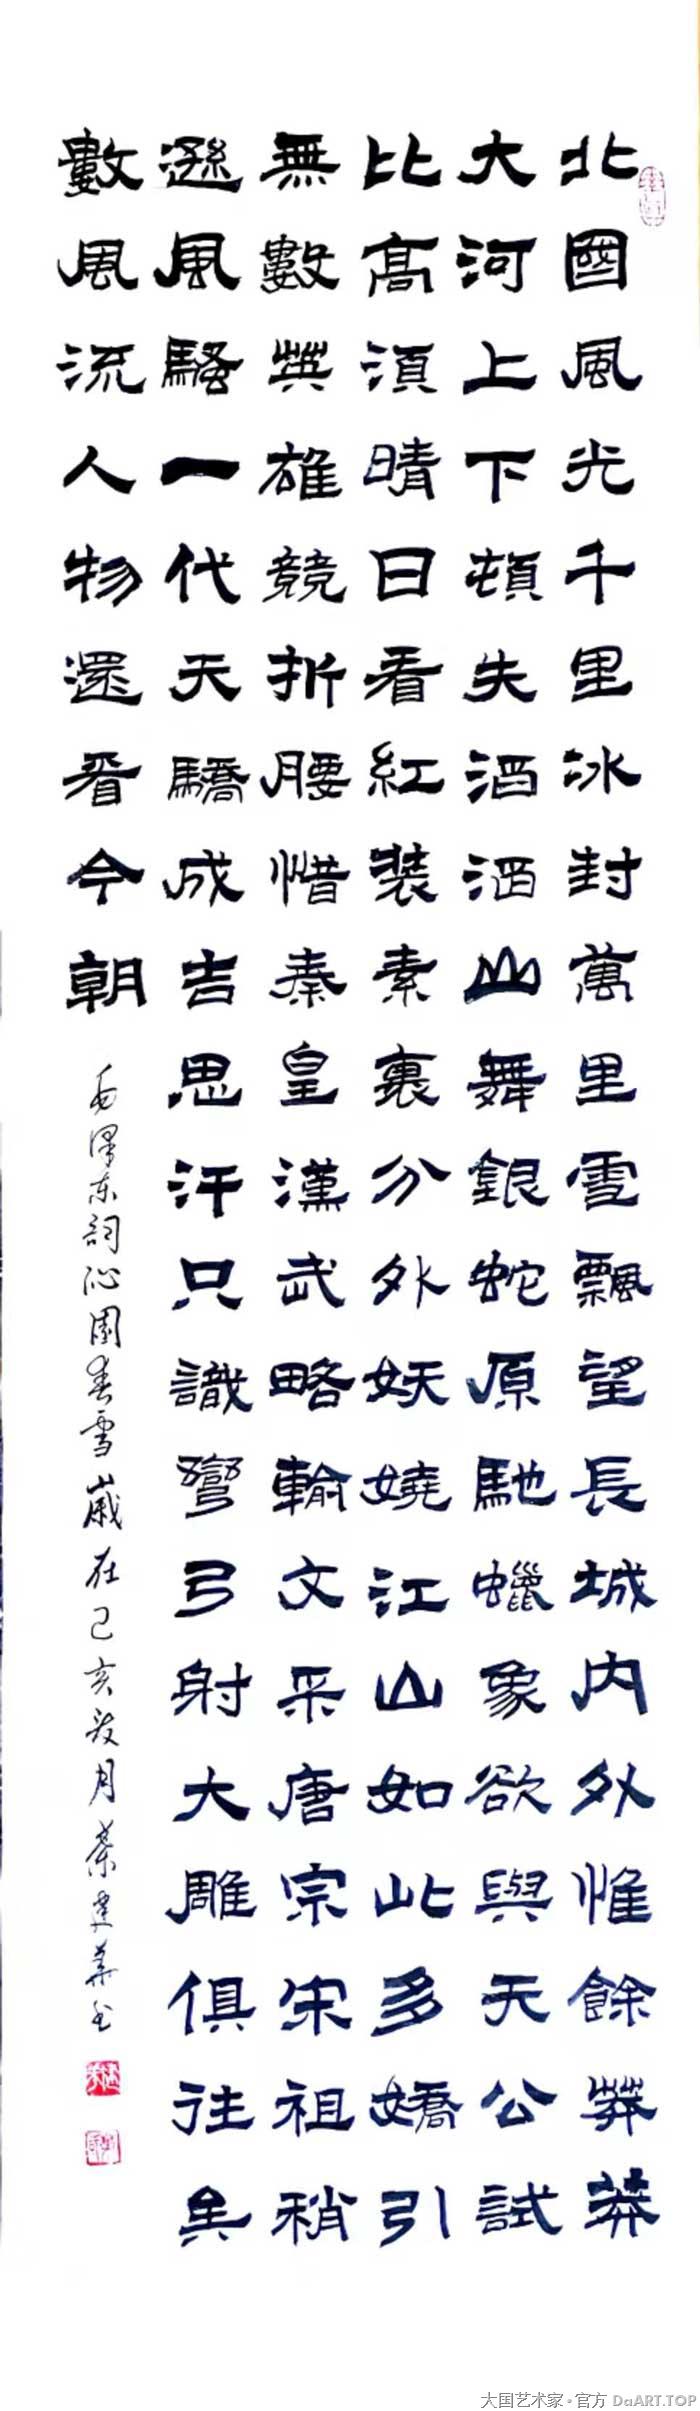 北國風光千里冰封萬里雪飄望長城内外惟餘莽莽
大河上下頓失滔滔山舞銀蛇原馳蠟象欲與天公試
比高須晴日看紅装素裹分外妖嬈江山如此多嬌引
無數英雄競折腰惜秦皇漢武略輸文采唐宗宋祖稍
遜風騷一代天驕成吉思汗只識彎弓射大雕俱往矣
數風流人物還看今朝
毛澤东詞沁園春雪歲在己亥月建華书
大国艺术家·官方 DaART.TOP